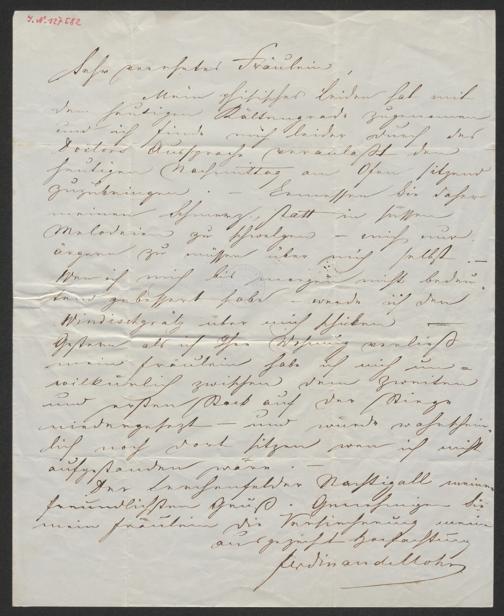 J.N. 127.682
Sehr verehrtes Fräulein,
Mein phisisches Leiden hat mit
dem heutigen Kältengrade zugenomen
und ich finde mich leider durch des
Doctors Aussprache veranlaßt den
heutigen Nachmittag am Ofen sitzend
zuzubringen. – Ermessen Sie daher
meinen Schmerz, statt in süssen
Melodien zu schwelgen – mich nur
ärgern zu müssen über mich selbst. –
Wen ich mich bis morgen nicht bedeu-
tend gebessert habe – werde ich den
Windischgrätz über mich schiken –
Gestern als ich Ihre Wohnung verließ
mein Fräulein habe ich mich un-
wilkürlich zwischen dem zweiten
und ersten Stock auf der Stiege
niedergesezt – und würde wahrschein-
lich noch dort sitzen wen ich nicht
aufgestanden wäre. –
Der Lerchenfelder Nachtigall meinen
freundlichsten Gruß. Genehmigen Sie
mein Fräulein die Versicherung meiner
ausgezeicht Hochachtung
Ferdinand